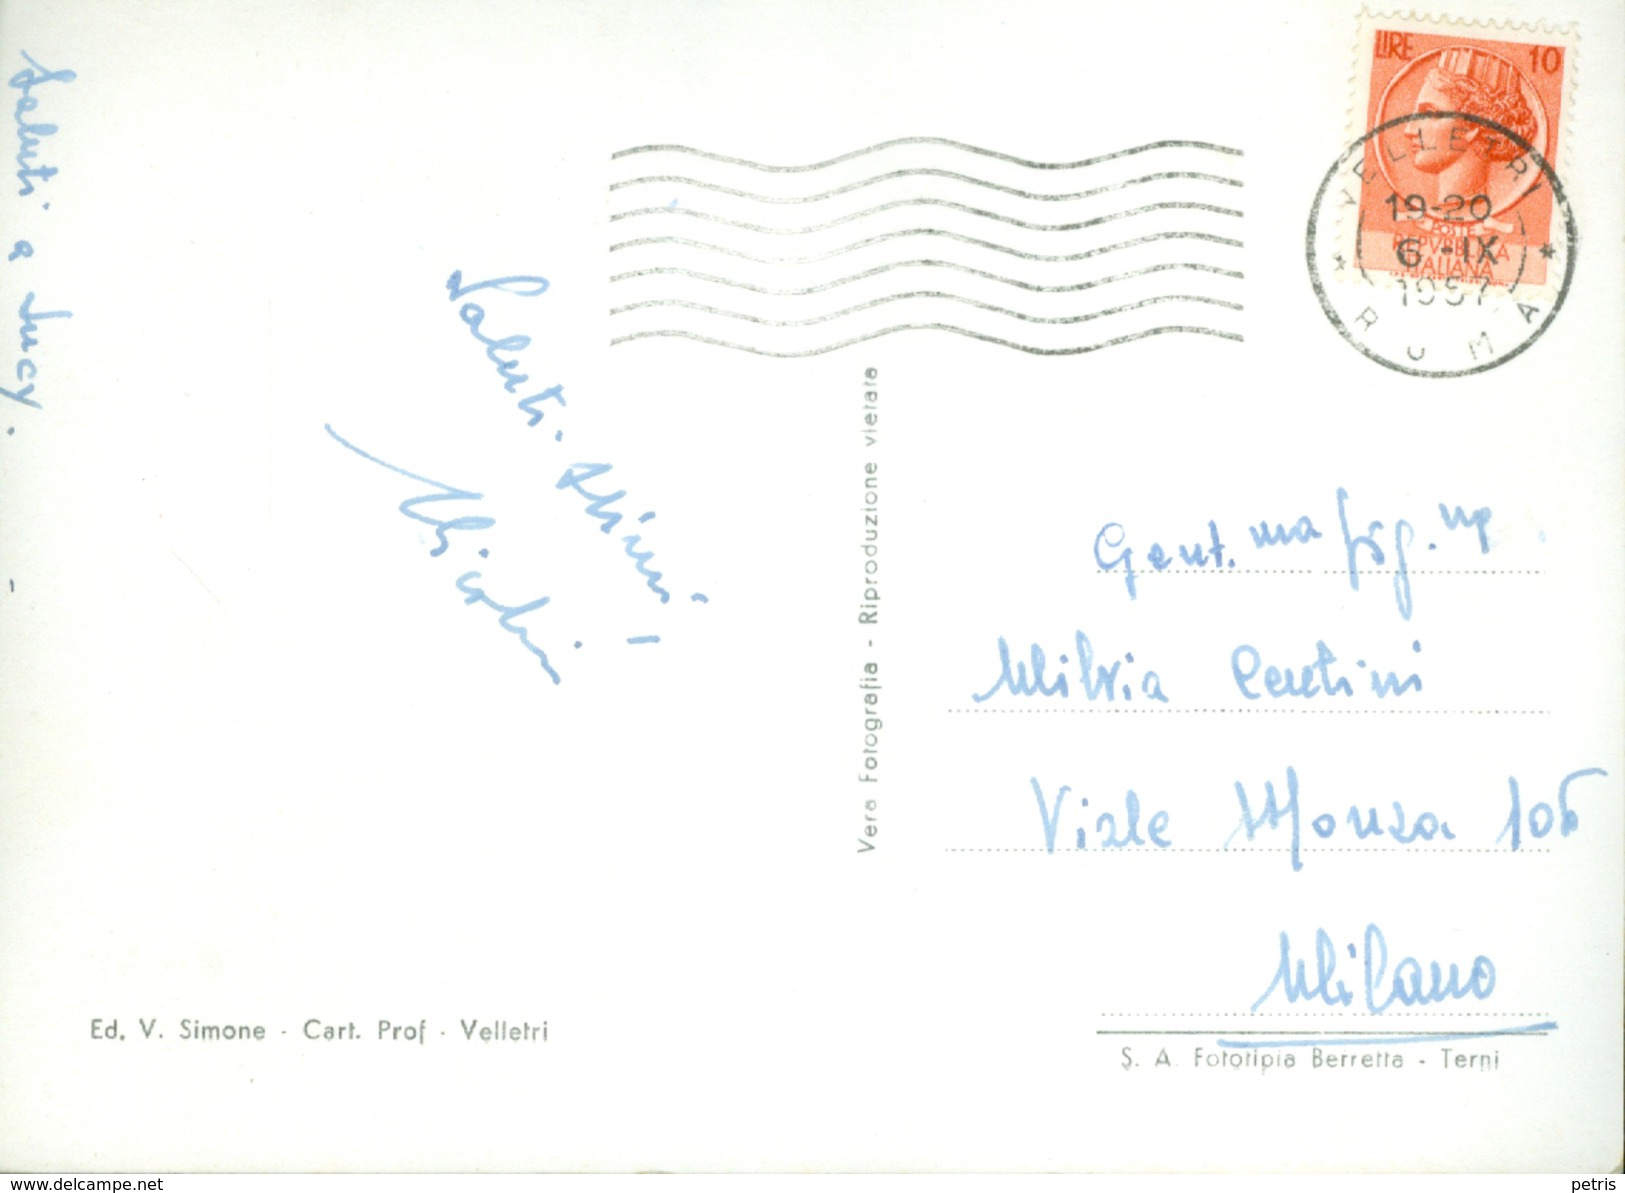 Saluti a Lucy.
LIRE 10
POSTE
REPVBBLICA
ITALIANA
VELLETRI
19-20
6-IX
1957
ROMA
Saluti.
Vera Fotografia - Riproduzione vietata
Gent.ma Sig.na
Milvia Centini
Viale Monza 106
Milano
Ed. V. Simone - Cart. Prof - Velletri
S. A. Fototipia Berretta - Terni
www.delcampe.net
petris